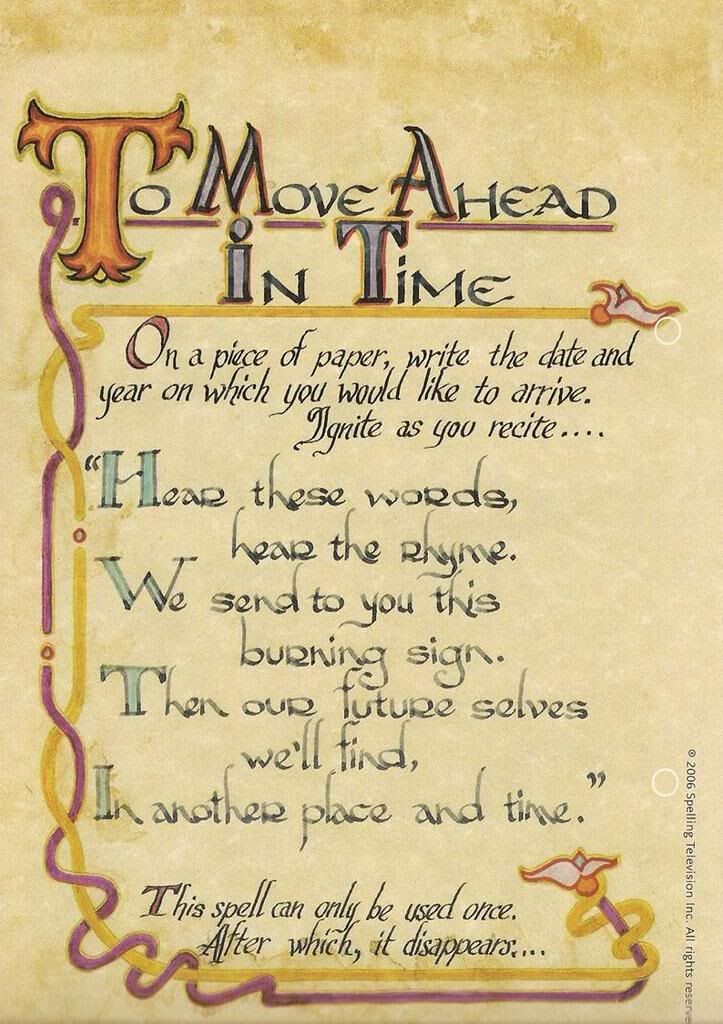 To Move Ahead
In Time
On a piece of paper, write the date and
year on which you would like to arrive.
Ignite as you recite....
"Hear these words,
hear the rhyme.
We send to you this
burning sign.
Then our future selves
we'll find,
In another place and time."
This spell can only be used once.
After which, it disappears....
© 2006 Spelling Television Inc. All rights reserve